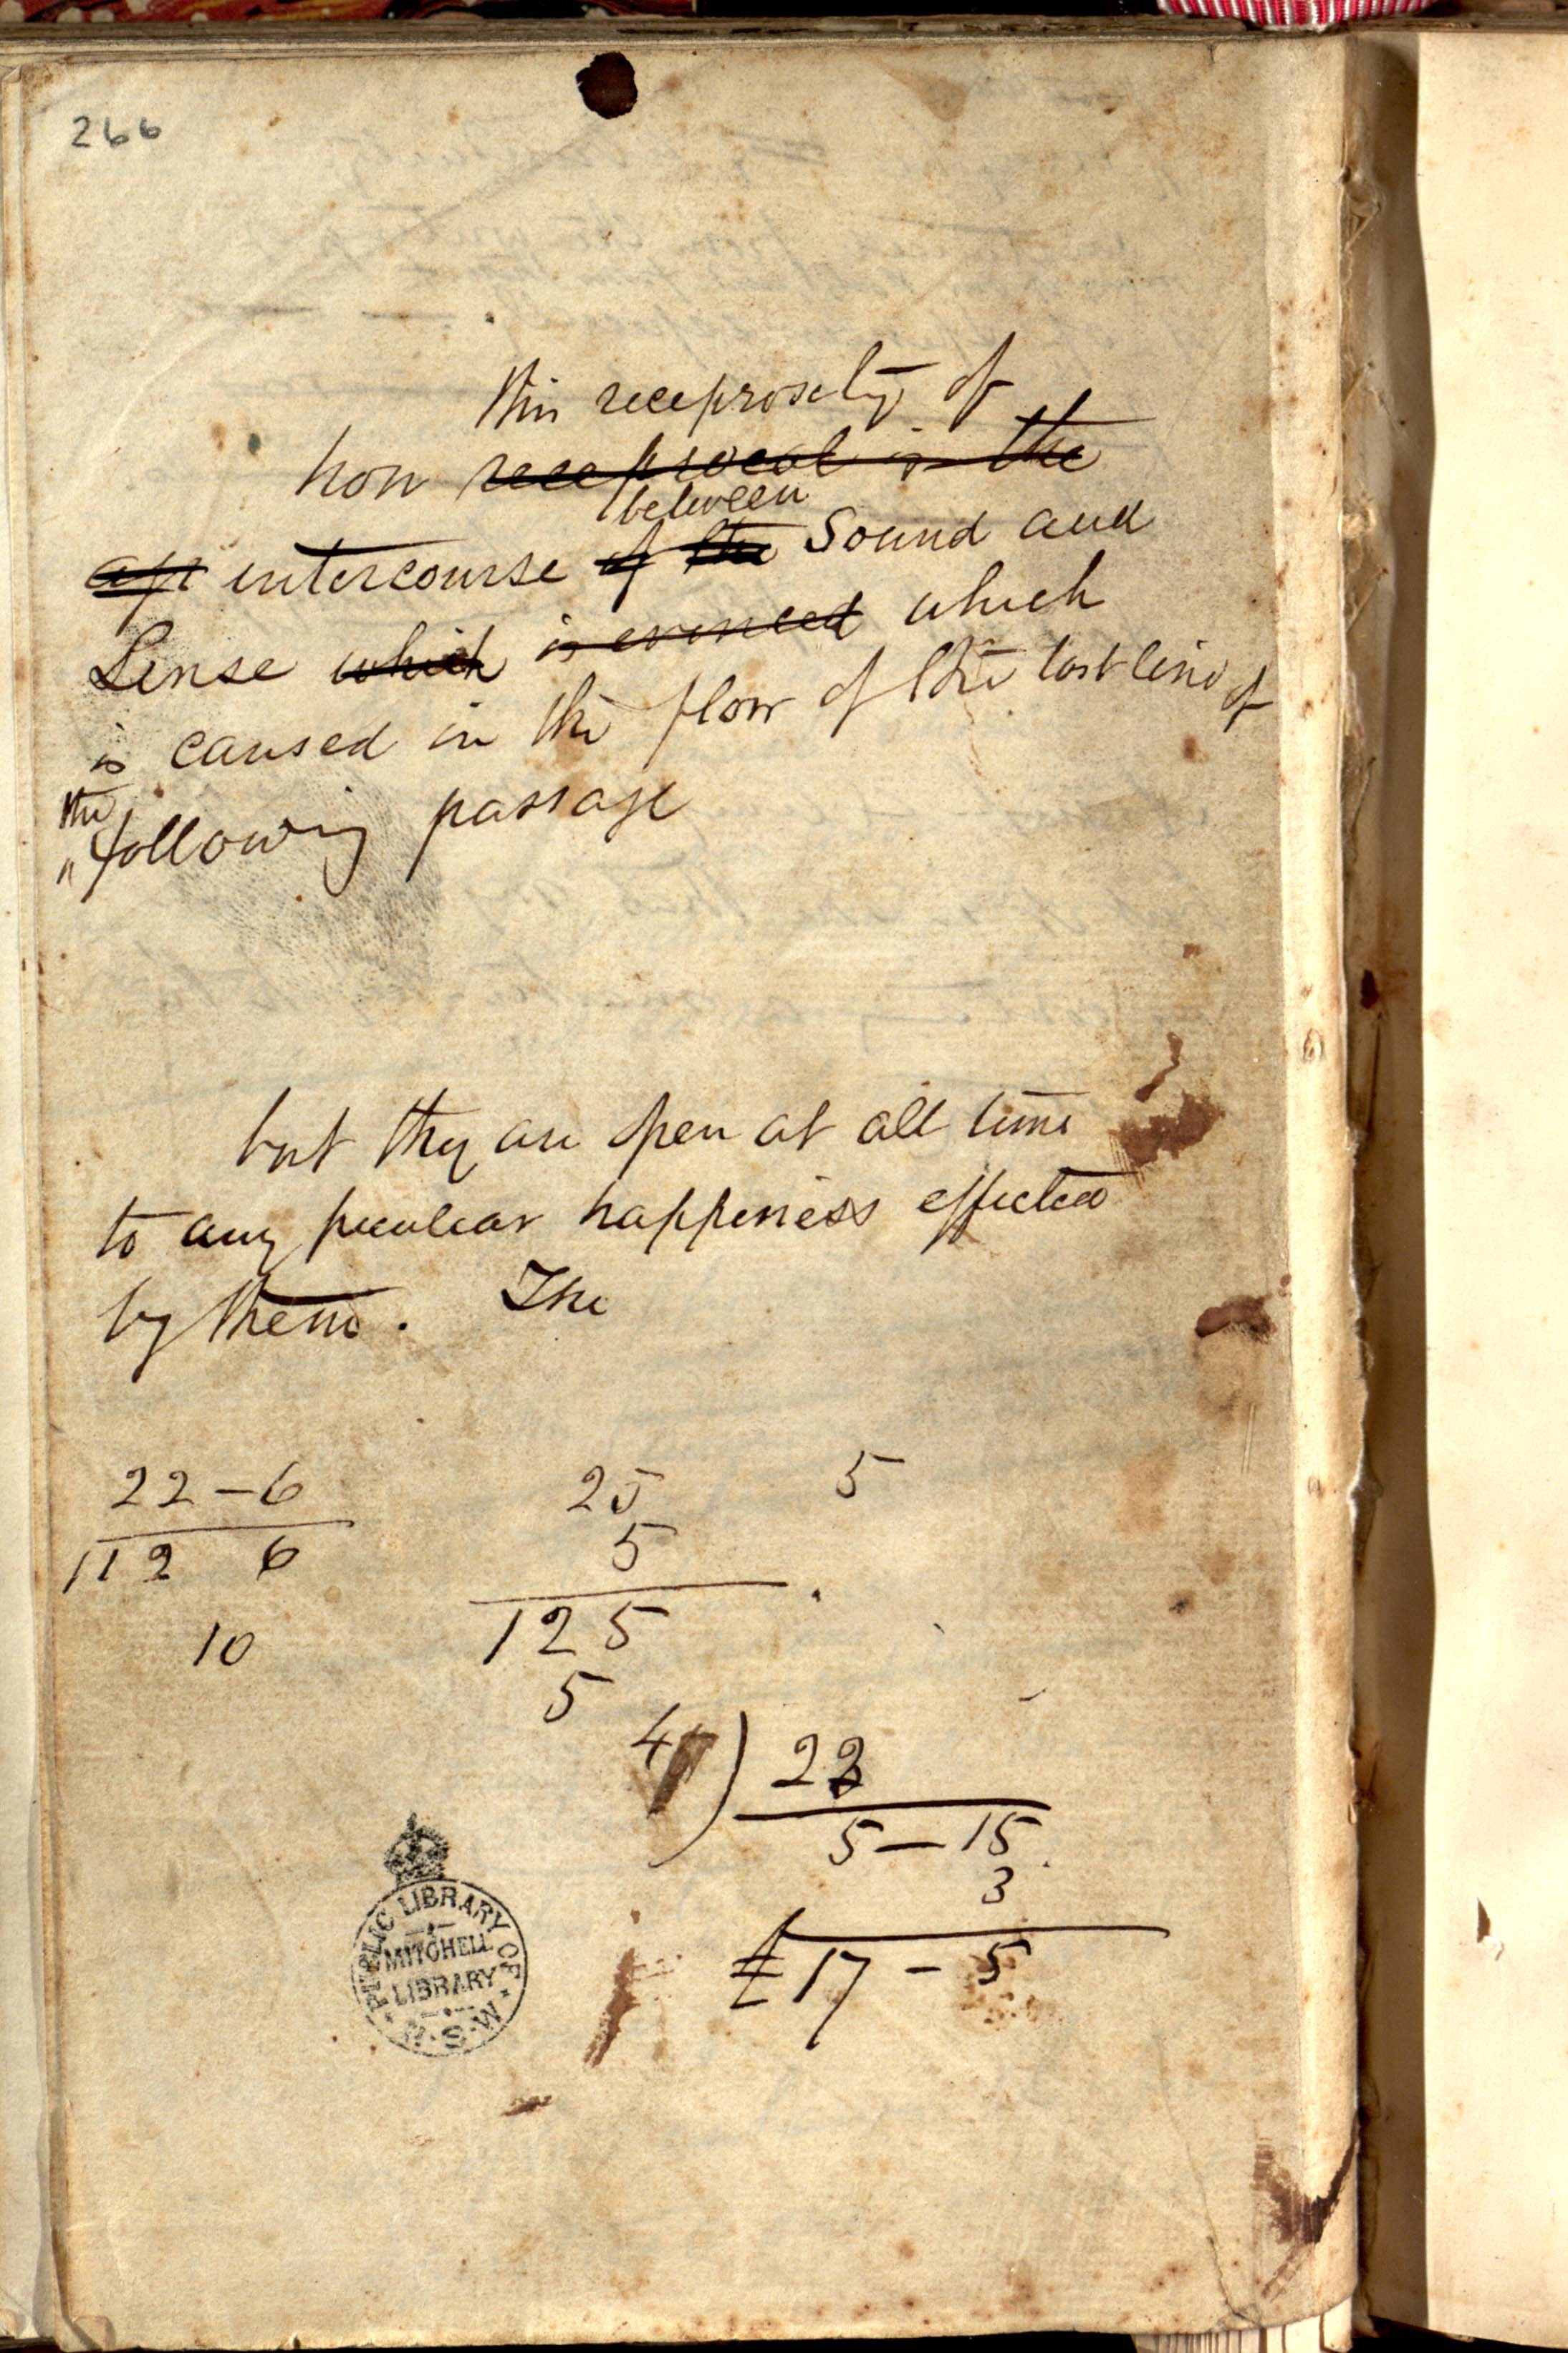 266
this receprosety of
how receprocal is the
between
intercourse of the Sound and
Sense which is evinced which
is caused in the flow of the last line of
the
"following passage
but they are open at all time
to any peculiar happiness effected
by them. The
22-6
112 6
10
25
5
125
5
5
4) 22
5-15
3
£17-5
PUBLIC LIBRARY OF N.S.W.
MITCHELL
LIBRARY